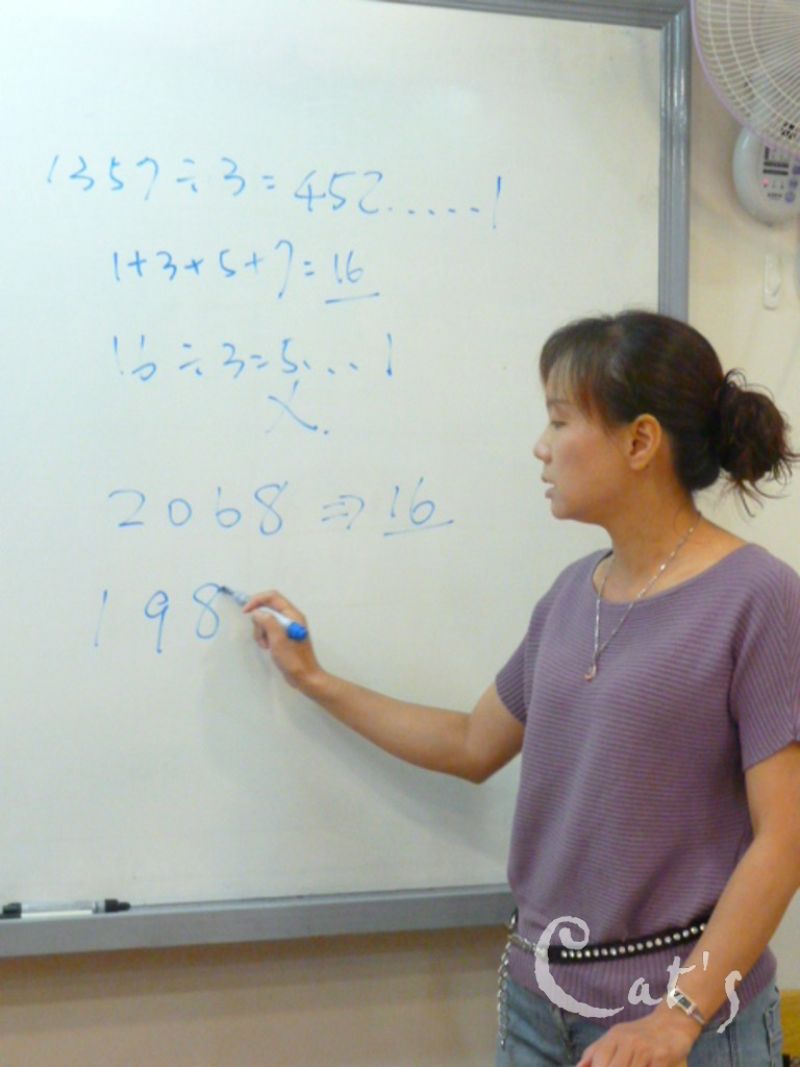 1357÷3=452.....1
1+3+5+7=16
16÷3=5...1
X.
2068⇒16
198
Cat's